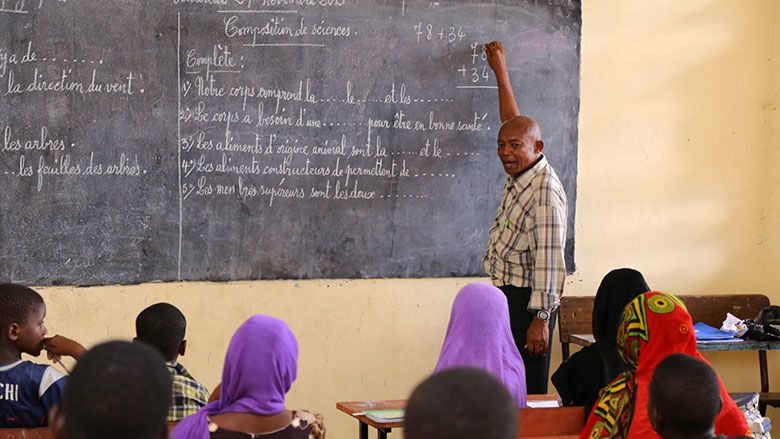 Novembre 2015
Composition de sciences.
78 + 34
78
+ 34
ya de .......
la direction du vent.
les arbres.
...les feuilles des arbres.
Complète :
1) Notre corps comprend la ...... le ..... et les ..........
2) Le corps a besoin d'une .......... pour être en bonne santé.
3) Les aliments d'origine animal sont la ..... et le .......
4) Les aliments constructeurs de permettent de ..........
5) Les membres supérieurs sont les deux ..........
CHI